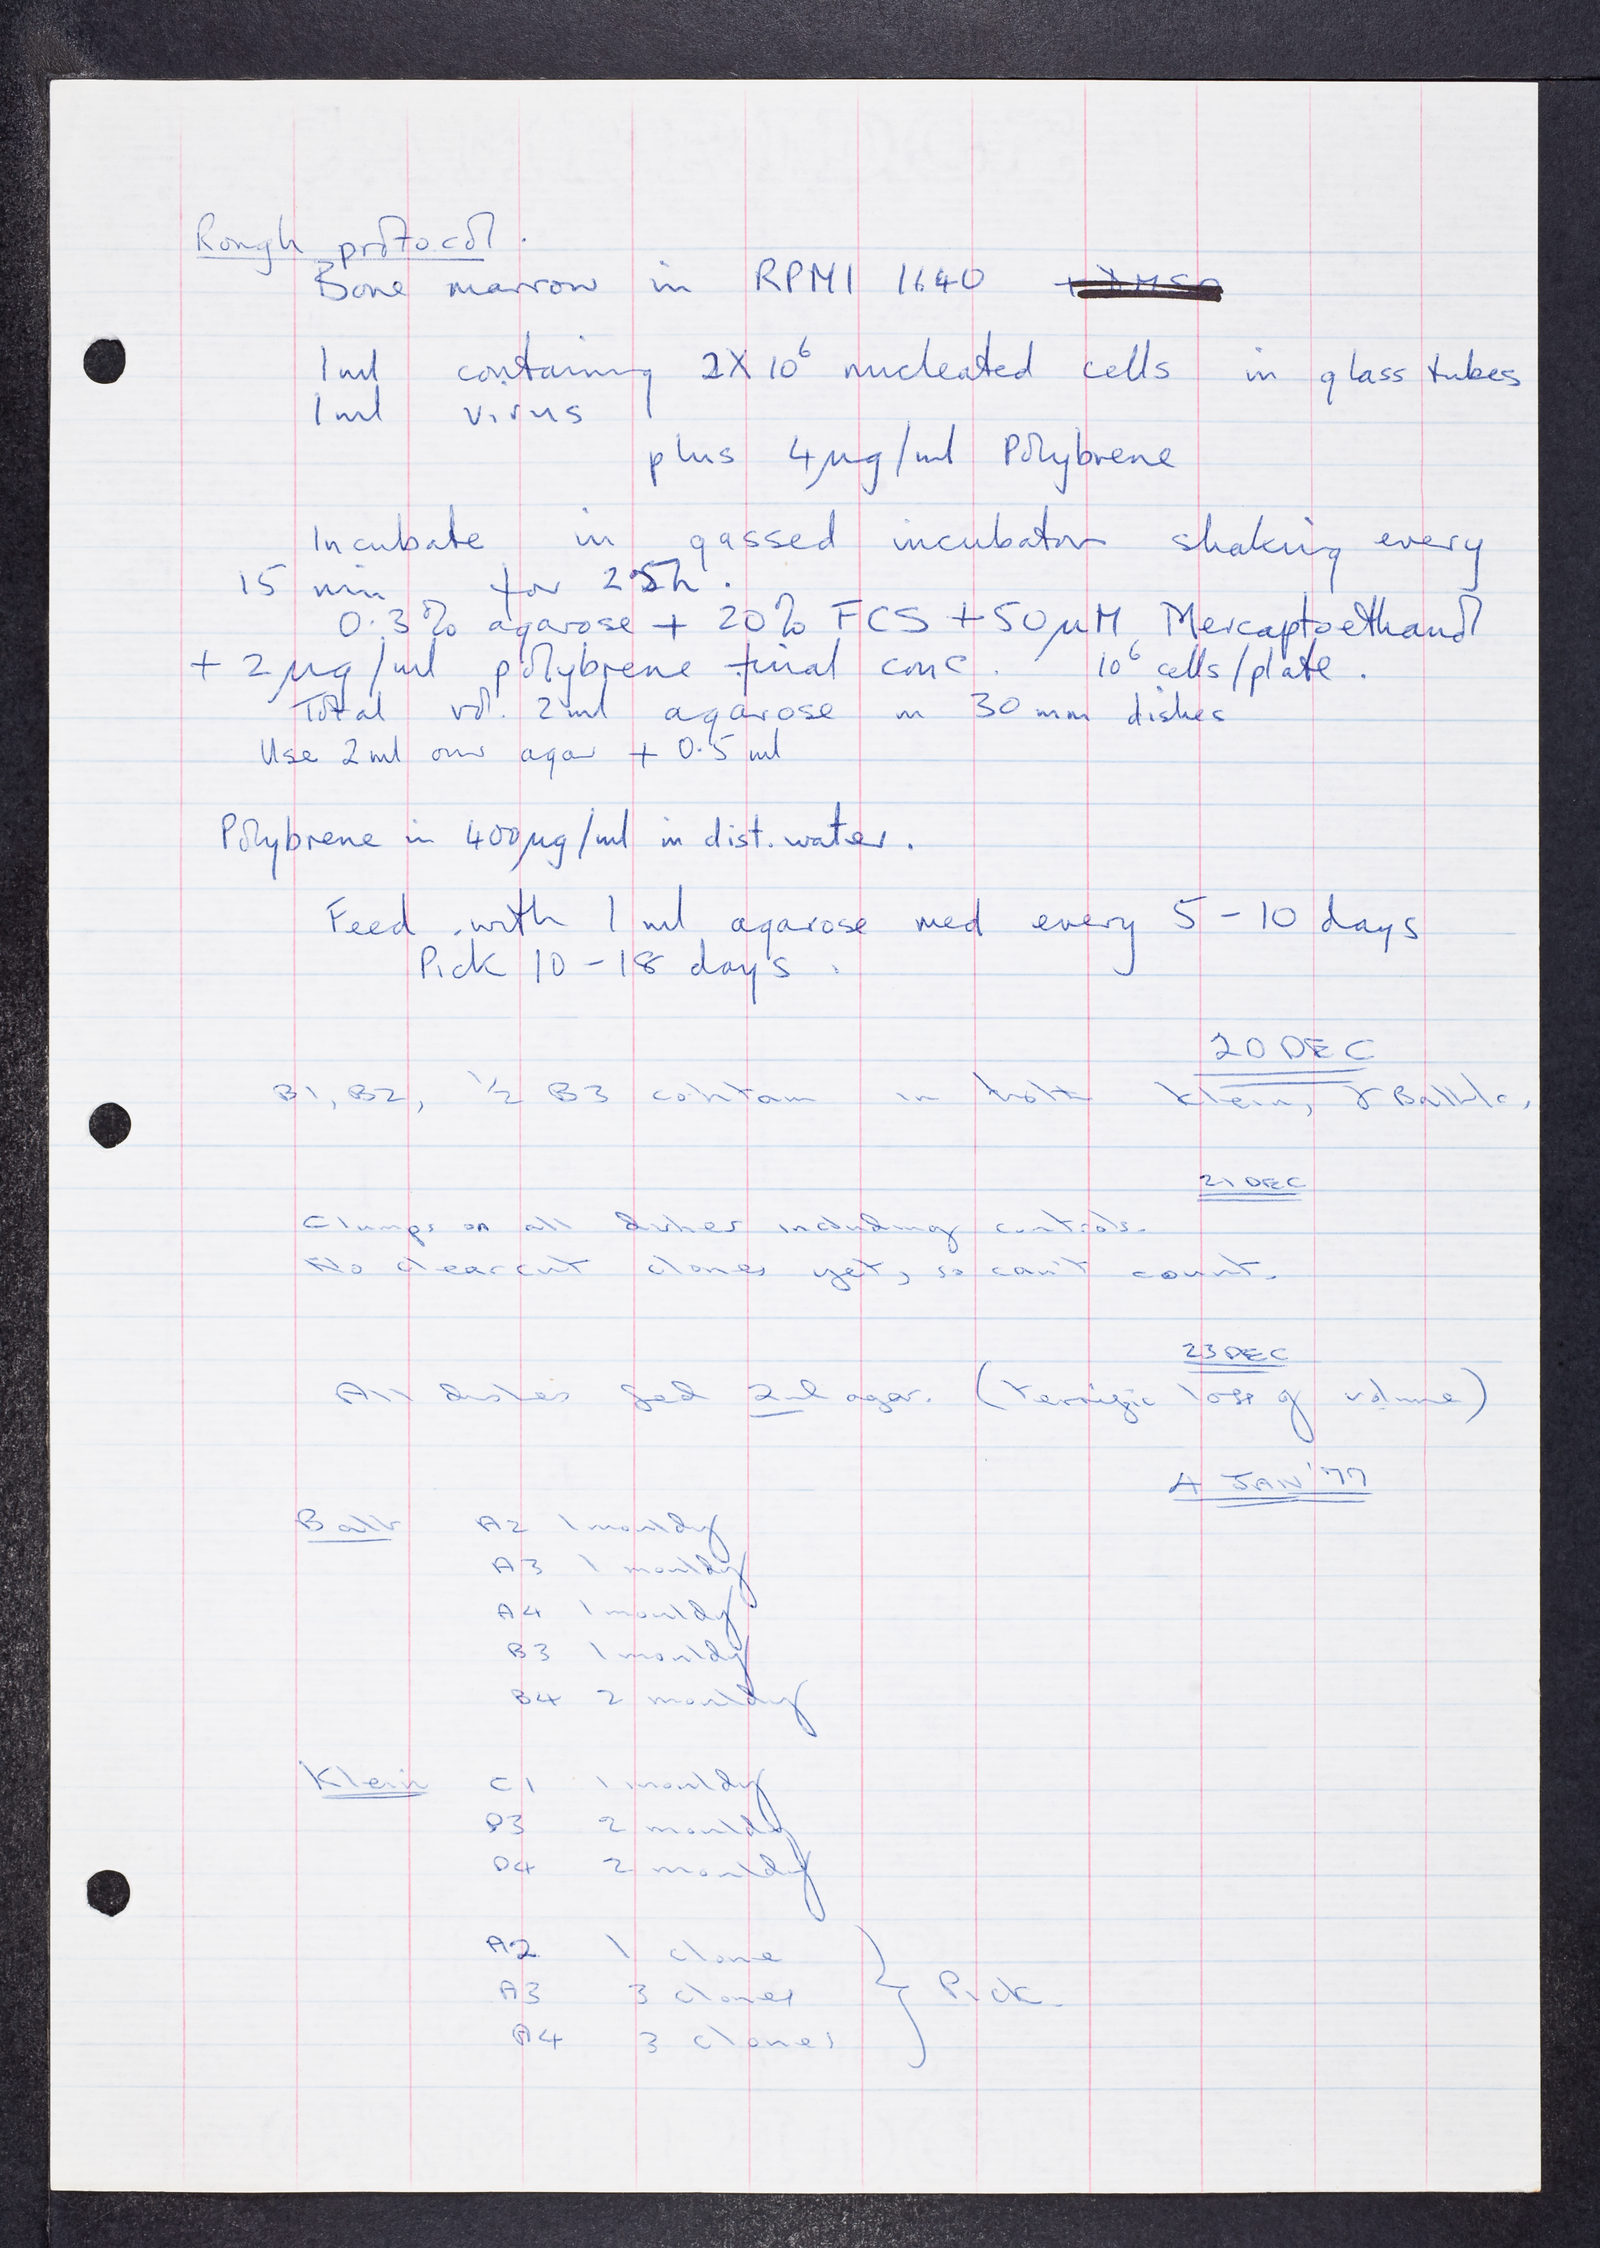 Rough protocol.
Bone marrow in RPMI 1640
1ml containing 2X10⁶ nucleated cells in glass tubes
1ml virus
plus 4µg/ml Polybrene
Incubate in gassed incubator shaking every
15 min for 2.5h.
0.3% agarose + 20% FCS + 50µM Mercaptoethanol
+ 2µg/ml polybrene final conc. 10⁶ cells/plate.
Total vol. 2ml agarose in 30mm dishes
Use 2ml our agar + 0.5 ml
Polybrene in 400µg/ml in dist. water.
Feed with 1 ml agarose med every 5-10 days
Pick 10-18 days.
20 DEC
B1, B2, ½ B3 contam in both Klein, & Balb/c,
21 DEC
Clumps on all dishes including controls.
No clearcut clones yet, so can't count.
23 DEC
All dishes fed 2ml agar. (Terrific loss of volume)
4 JAN '77
Balb A2 1 mouldy
A3 1 mouldy
A4 1 mouldy
B3 1 mouldy
B4 2 mouldy
Klein C1 1 mouldy
D3 2 mouldy
D4 2 mouldy
A2 1 clone
A3 3 clones } Pick.
A4 3 clones